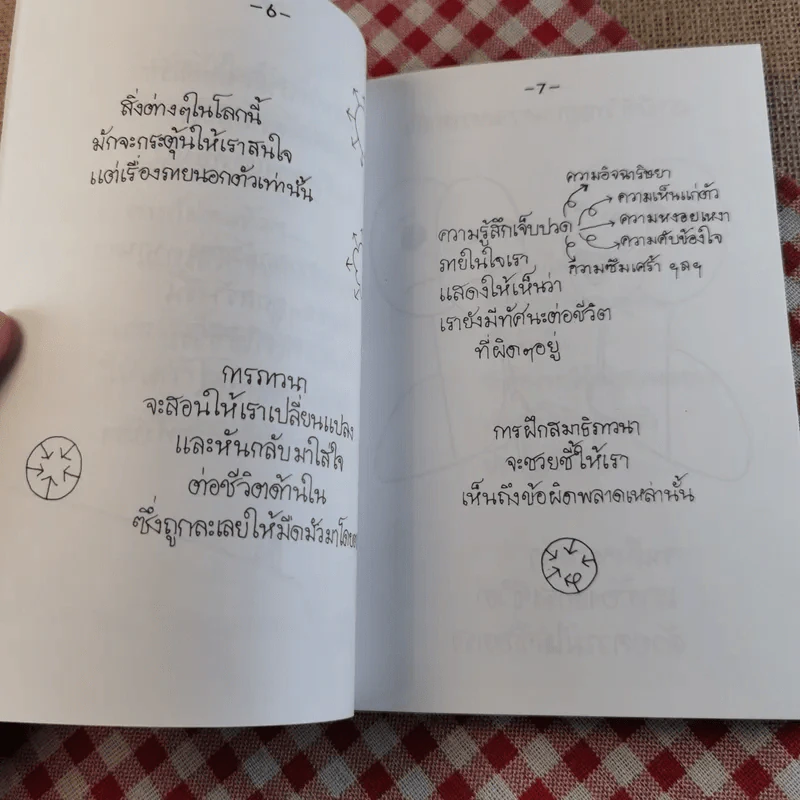 -6-
สิ่งต่างๆในโลกนี้
มักจะกระตุ้นให้เราสนใจ
แต่เรื่องภายนอกตัวเท่านั้น
การภาวนา
จะสอนให้เราเปลี่ยนแปลง
และหันกลับมาใส่ใจ
ต่อชีวิตด้านใน
ซึ่งถูกละเลยให้มืดมัวมาโดย
-7-
ความอิจฉาริษยา
ความเห็นแก่ตัว
ความรู้สึกเจ็บปวด
ความหงอยเหงา
ความคับข้องใจ
ภายในใจเรา
ความซึมเศร้า ฯลฯ
แสดงให้เห็นว่า
เรายังมีทัศนะต่อชีวิต
ที่ผิดๆอยู่
การฝึกสมาธิภาวนา
จะช่วยชี้ให้เรา
เห็นถึงข้อผิดพลาดเหล่านั้น